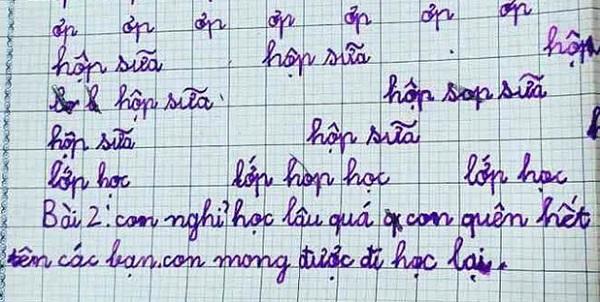 ợp ợp ợp ợp ợp ợp ợp
hộp sữa hộp sữa hộp
hộp sữa hộp sữa
hộp sữa hộp sữa
lớp học lớp học lớp học
Bài 2: con nghỉ học lâu quá con quên hết
tên các bạn. con mong được đi học lại.